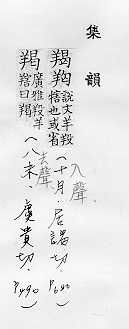 集韻
羯
說文羊羖
犗也或省
入聲
(十月.居謁切. P690)
羯
廣雅羖羊
犗曰羯
去聲
(八未.虞貴切. P490)